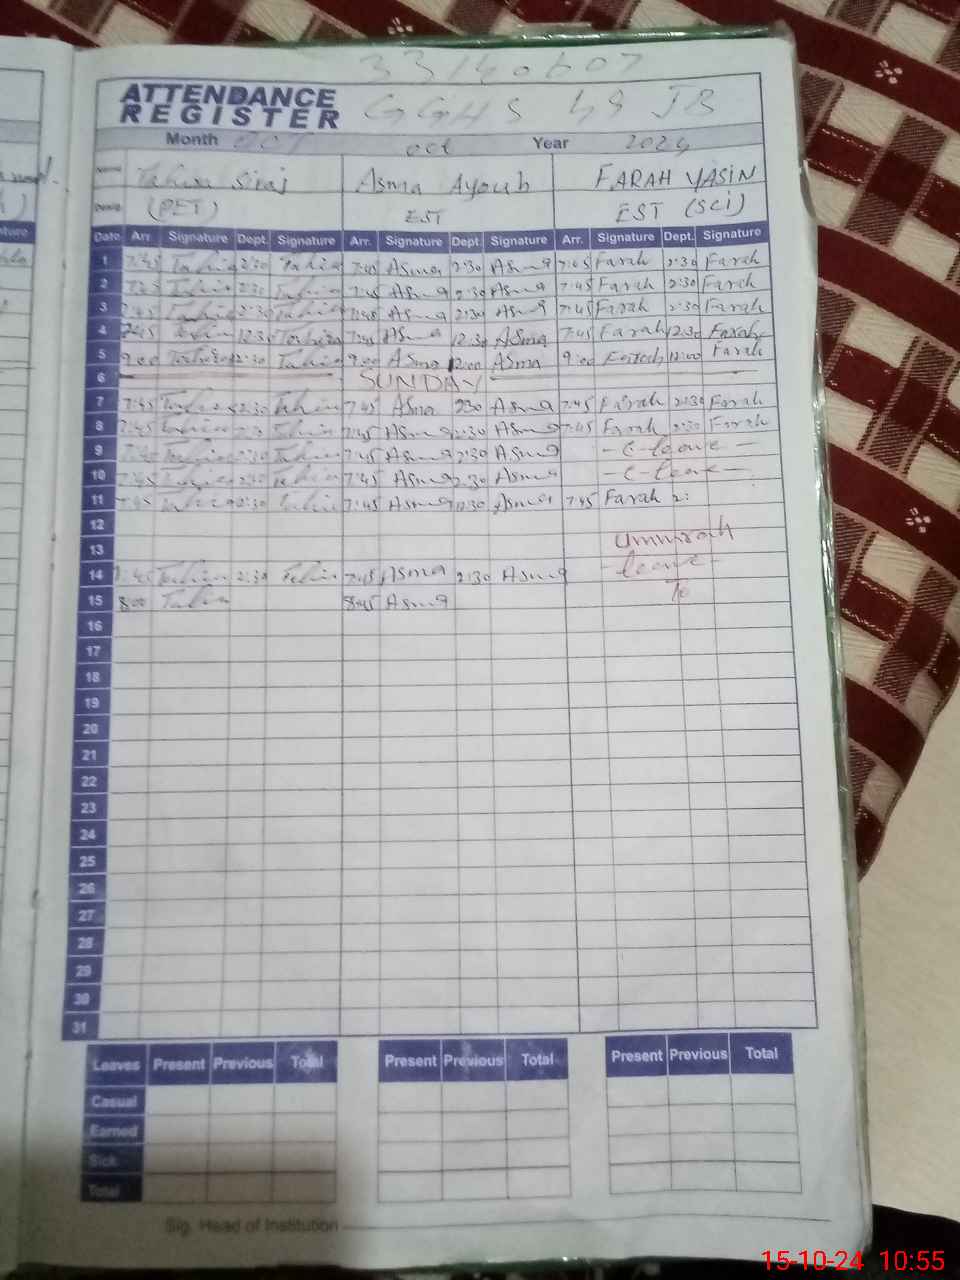 33140607
ATTENDANCE
REGISTER
GGHS 59 JB
Month OCT oct Year 2024
Name Tahira Siraj Asma Ayoub FARAH YASIN
(PET) EST EST (SCI)
Date Arr. Signature Dept. Signature Arr. Signature Dept Signature Arr. Signature Dept. Signature
1 7:45 Tahira 2:30 Tahira 7:45 Asma 2:30 Asma 7:45 Farah 2:30 Farah
2 7:45 Tahira 2:30 Tahira 7:45 Asma 2:30 Asma 7:45 Farah 2:30 Farah
3 7:45 Tahira 2:30 Tahira 7:45 Asma 2:30 Asma 7:45 Farah 2:30 Farah
4 7:45 Tahira 12:30 Tahira 7:45 Asma 12:30 Asma 7:45 Farah 12:30 Farah
5 9:00 Tahira Tahira 9:00 Asma 12:00 Asma 9:00 Farah 12:00 Farah
6 SUNDAY
7 7:45 Tahira 2:30 Tahira 7:45 Asma 2:30 Asma 7:45 Farah 2:30 Farah
8 7:45 Tahira 2:30 Tahira 7:45 Asma 2:30 Asma 7:45 Farah 2:30 Farah
9 7:45 Tahira 2:30 Tahira 7:45 Asma 2:30 Asma - C-leave -
10 7:45 Tahira 2:30 Tahira 7:45 Asma 2:30 Asma - C-leave -
11 7:45 Tahira 12:30 Tahira 7:45 Asma 12:30 Asma 7:45 Farah 2:
12
13 Ummrah
14 7:45 Tahira 2:30 Tahira 7:45 Asma 2:30 Asma - leave -
15 8:00 Tahira 8:45 Asma To
16
17
18
19
20
21
22
23
24
25
26
27
28
29
30
31
Leaves Present Previous Total Present Previous Total Present Previous Total
Casual
Earned
Sick
Total
Sig. Head of Institution
15-10-24 10:55